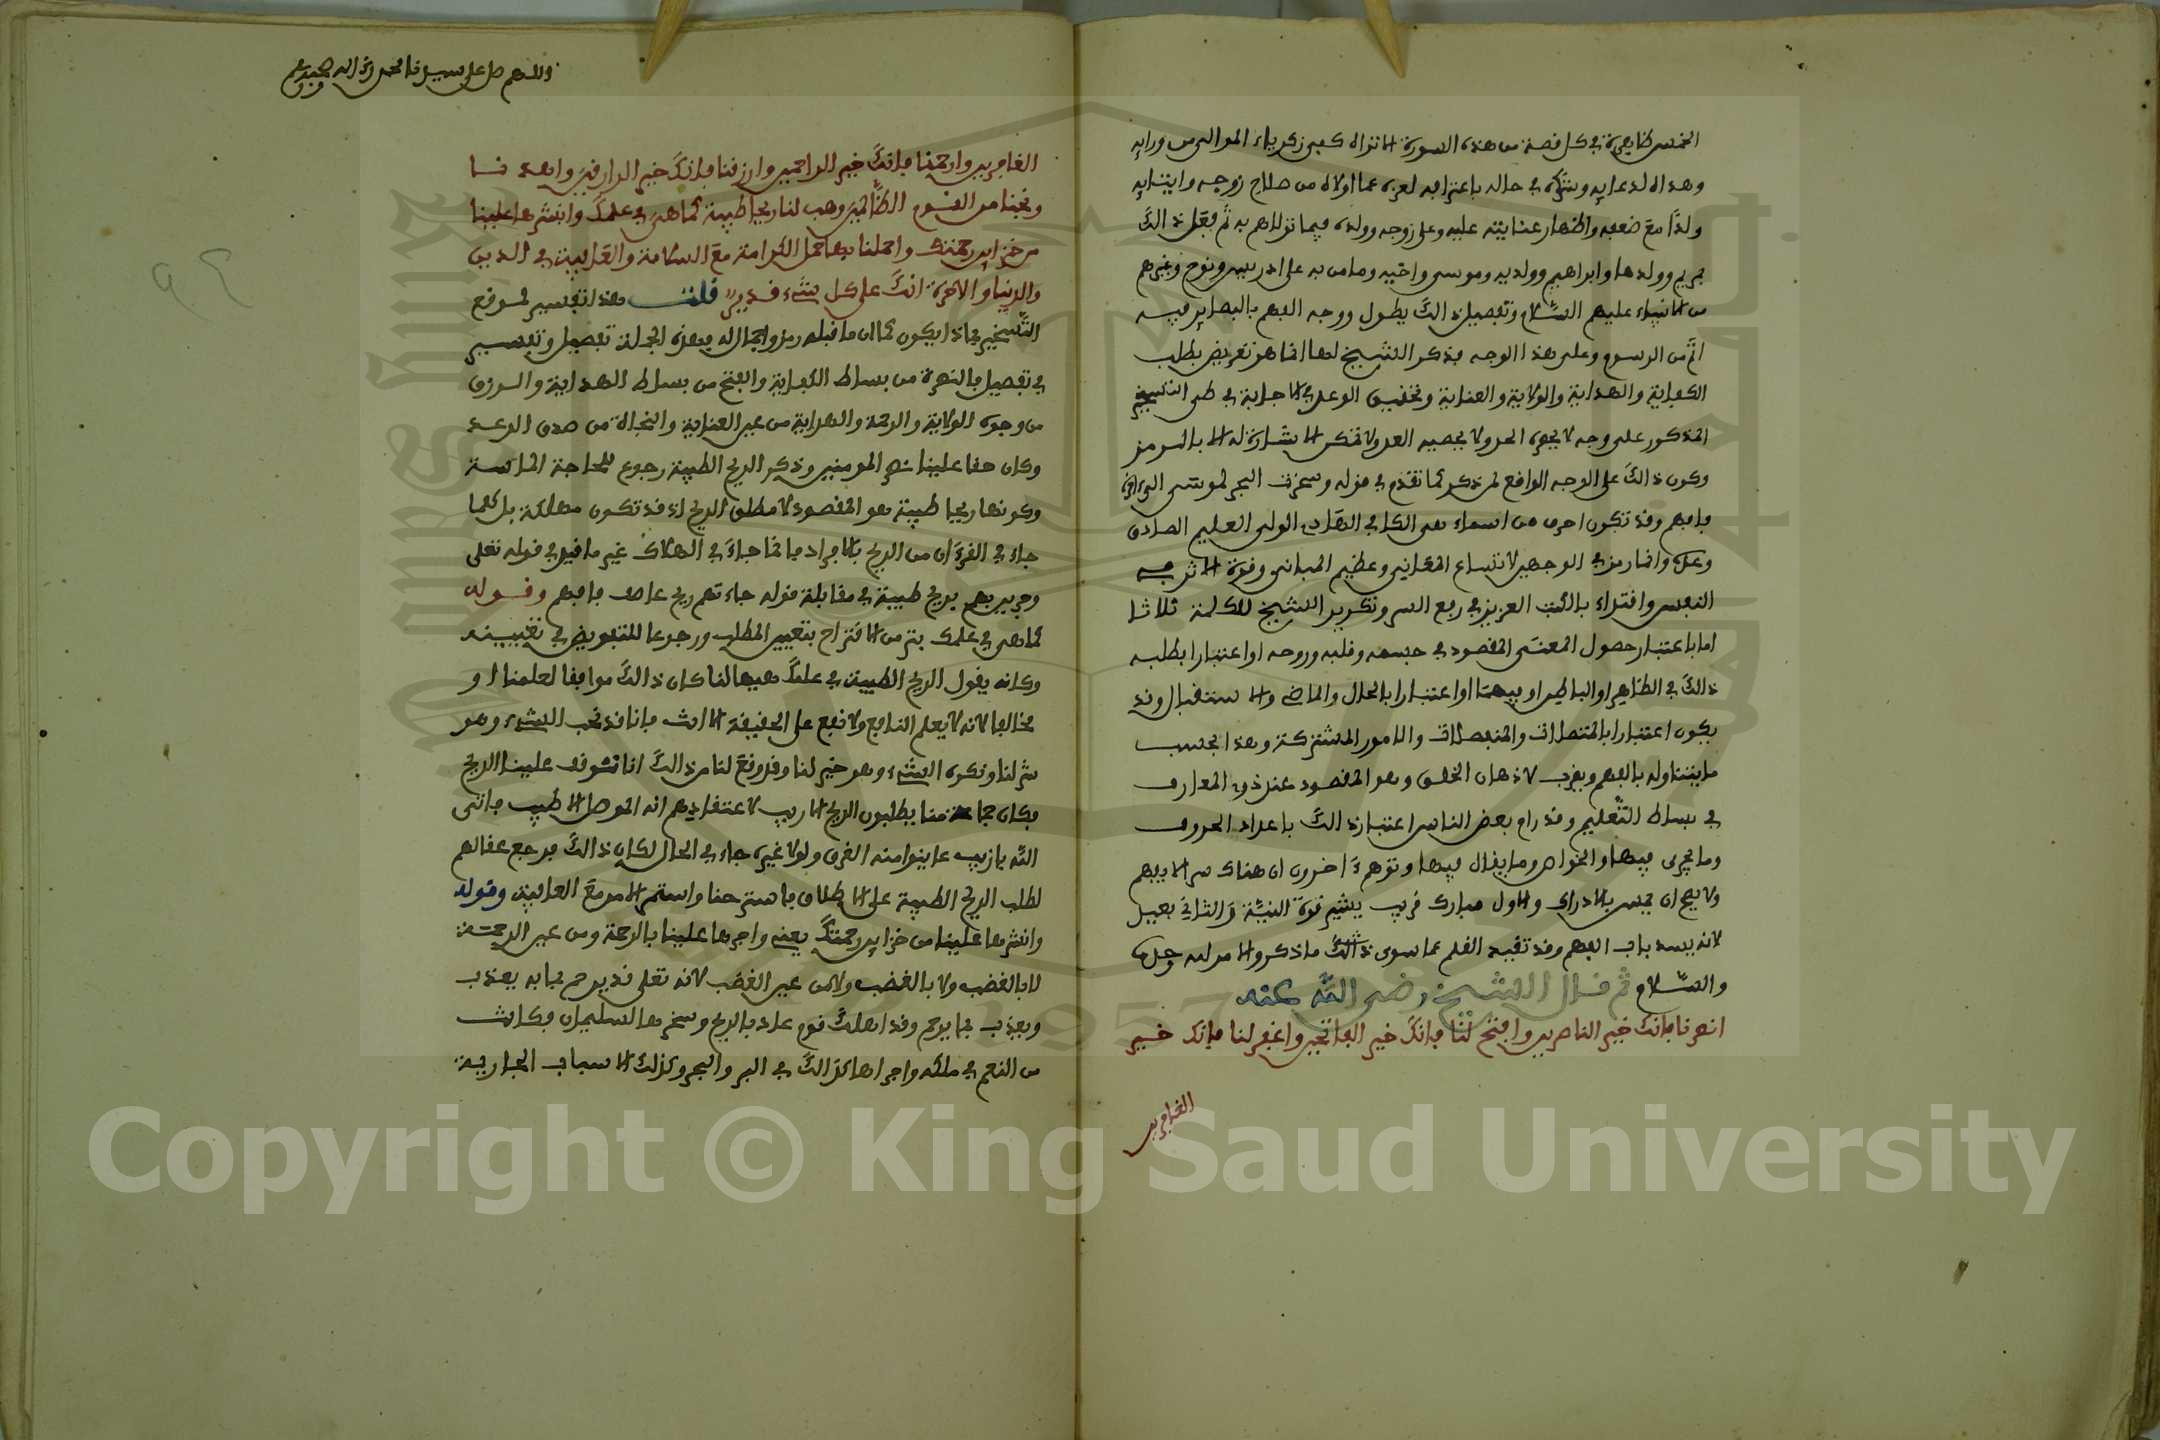 الخمس ظاهرة في كل قصة من هذه السورة الا تراه كيف زكرياء الموالي من ورايه
وهداه لدعايه وشكره في حاله باعترابه لعزه عما اولاه من صلاح زوجه وايتايه
ولدا مع ضعبه واظهار عنايته عليه وعلى زوجه وولده فيما تولاهم به ثم فعل ذالك
بمريم وولدها وابراهيم وولديه وموسى واخيه وما من به على ادريس ونوح وغيرهم
من الانبياء عليهم السلام وتفصيل ذالك يطول ووجه الفهم بالبصاير فيه
اتم من الرسوم وعلى هذا الوجه فذكر الشيخ لها انما هو تعريض بطلب
الكفاية والهداية والولاية والعناية وتحقيق الوعد في الاجابة في طي التسخير
المذكور على وجه لا يحوه الحد ولا يحصيه العد ولا تمكن الاشارة له الا بالرمز
وكون ذالك على الوجه الواقع لمن ذكر كما تقدم في قوله وسخرت البحر لموسى الى اخره
فافهم وقد تكون احرف من اسماء هي الكافي الهادي الولي العليم الصادق
وعلى وانما رمز في الوجهين لاتساع المعاني وعظيم المباني وقوة الاثر فيه
النفس واقتداء بالكتب العزيز في ربع السر وتكرير الشيخ للكلمة ثلاثا
اما باعتبار حصول المعنى المقصود في جسمه وقلبه وروحه او اعتبارا بطلبه
ذالك في الظاهر او الباطن او بيهما او اعتبارا بالحال والماضي والاستقبال وقد
يكون اعتبارا بالمتصلات والمنفصلات والامور المشتركة وهذا بحسب
ما يتناوله بالفهم ويقرب لاذهان الخلق وهو المقصود عند ذوي المعارف
في بساط التعليم وقد رام بعض الناس اعتبار ذالك باعداد الحروف
وما يجري فيها والخواص وما يقال فيها وتوهم ءاخرون ان هناك سرا لا يبهم
ولا يصح ان يحس بالادراك والاول مبارك قريب يشير قوة النية والثاني بعيد
لانه يسد باب الفهم وقد تقيد القلم عما سوى ذالك ما ذكر والامر لله وحده
والسلام ثم قال الشيخ رضي الله عنه
انصرنا فانك خير الناصرين وافتح لنا فانك خير الفاتحين واغفر لنا فانك خير
الغافرين
واللهم صل على سيدنا محمد وءاله وصحبه وسلم
الغافرين وارحمنا فانك خير الراحمين وارزقنا فانك خير الرازقين واهدنا
ونجنا من القوم الظالمين وهب لنا ريحا طيبة كما هي في علمك وانشرها علينا
من خزاين رحمتك واحملنا بها حمل الكرامة مع السلامة والعافية في الدين
والدنيا والاخرة انك على كل شيء قدير قلت هذا تفسير لموقع
التسخير بماذا يكون كما ان ما قبله رمز واجمال له فهذه الجملة تفصيل وتفسير
في تفصيل فالنصرة من بساط الكفاية والفتح من بساط الهداية والرزق
من وجوه الولاية والرحمة والهداية من عين العناية والنجاة من صدق الوعد
وكان حقا علينا نصر المومنين وذكر الريح الطيبة رجوع للحاجة الماسة
وكونها ريحا طيبة هو المقصود لا مطلق الريح اذ قد تكون مهلكة بل كلما
جاء في القرءان من الريح بالافراد فانما جاء في الهلاك غير ما قيل في قوله تعلى
وجرين بهم بريح طيبة في مقابلة قوله جاءتهم ريح عاصف فافهم وقوله
كما هي في علمك بتر من الاقتراح بتعيين المطلب ورجوعا للتفويض في تغييبه
وكانه يقول الريح الطيبة في علمك هبها لنا كان ذالك موافقا لعلمنا او
مخالفا لانه لا يعلم النافع ولا نفع على الحقيقة الا انت فانا قد نحب الشيء وهو
شر لنا ونكره الشيء وهو خير لنا وقد وقع لنا من ذالك انا تشوف علينا الريح
فكان جماعة منا يطلبون الريح الاريب لاعتقادهم انه الموصل الطيب فاتى
الله بازيب عاينوا منه الغرق ولولا غيره جاء في الحال لكان ذالك فرجع عقالهم
لطلب الريح الطيبة على الاطلاق فاسترحنا واستمر الامر مع العافية وقوله
وانشرها علينا من خزاين رحمتك يعني واجرها علينا بالرحمة ومن عين الرحمة
لا بالغضب ولا بالغضب ولا من عين الغضب لانه تعلى قد يرحم بما به يعذب
ويعذب بما يرحم وقد اهلك قوم عاد بالريح وسخرها لسليمان فكانت
من النعم في ملكه واجراها كذالك في البر والبحر وكذلك الاسباب الجارية
Copyright © King Saud University
1957